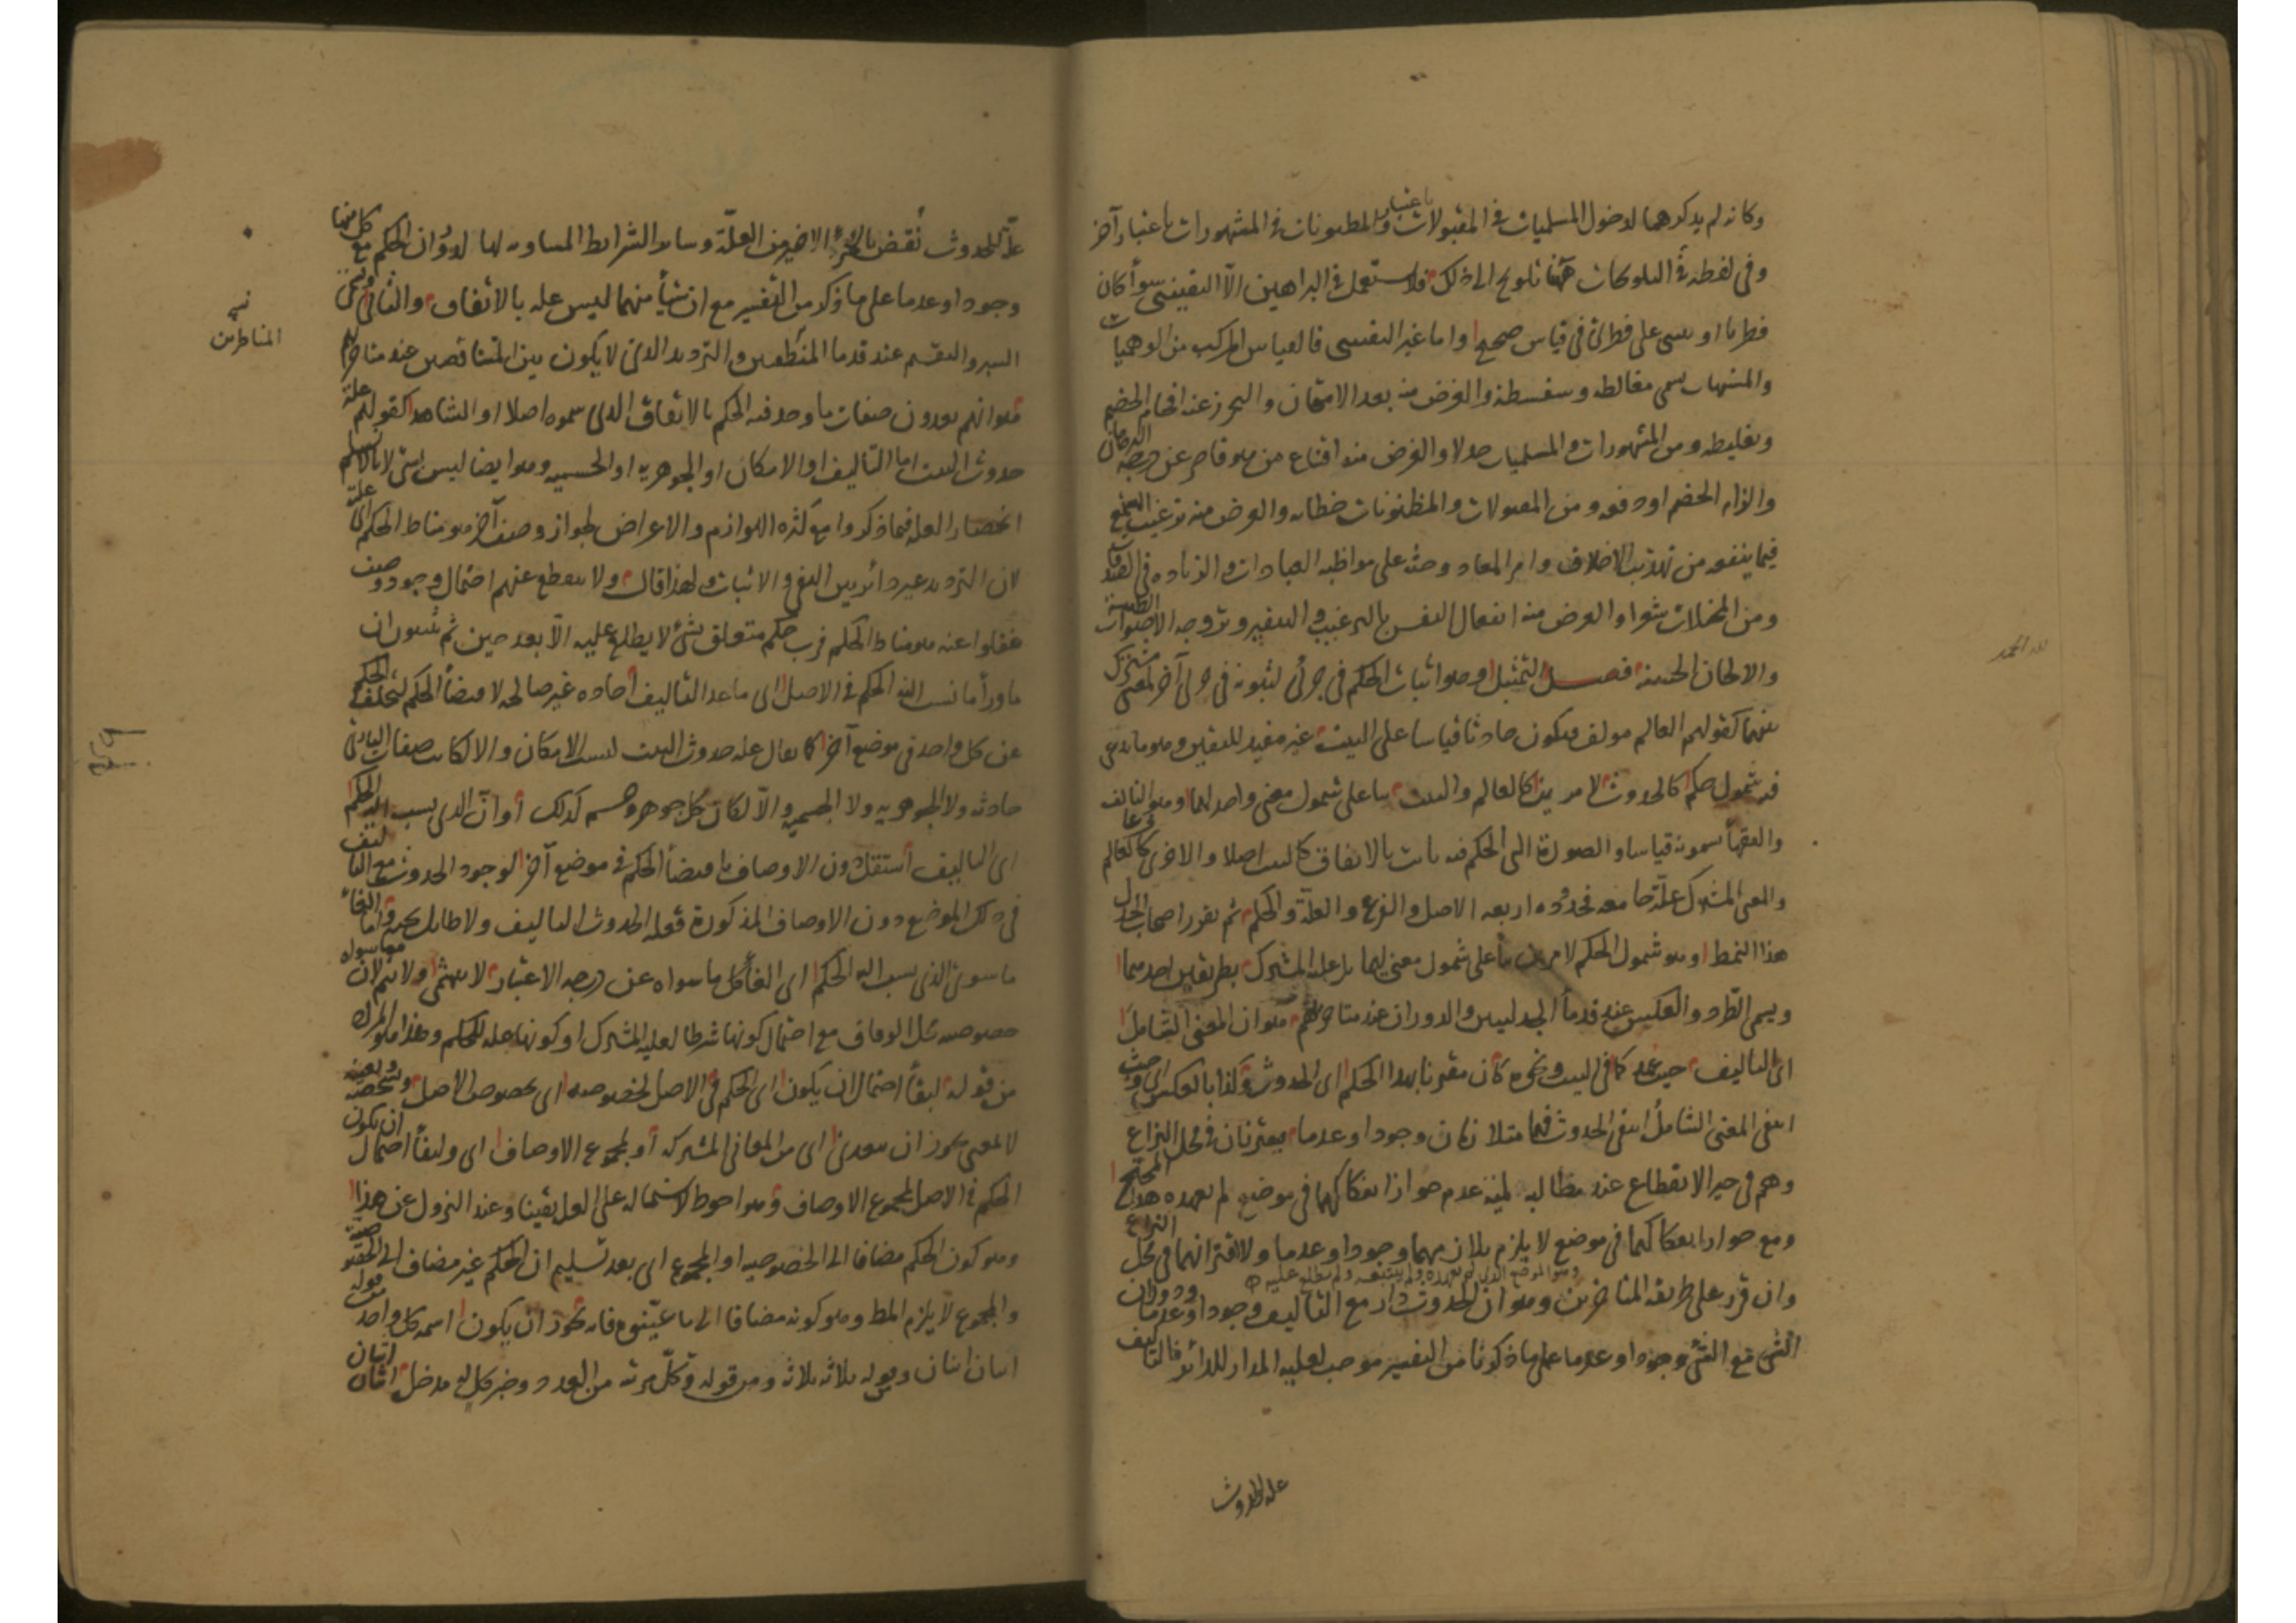 وكانه لم يذكرهما لدخول المسلميات في المقبولات باعتبار والمظنونات في المشهورات باعتبار آخر
وفي لفظة في التلويحات تلويح الى ذلك فلا يستعمل في البراهين الا اليقيني سواء كان
فطريا او يبتنى على فطري في قياس صحيح واما غير اليقيني فالقياس المركب من الوهميات
والمشبهات يسمى مغالطه وسفسطة والغرض منه بعد الامتحان والتحرز عنه افحام الخصم
وتغليطه ومن المشهورات والمسلميات جدلا والغرض منه اقناع من هو قاصر عن درجة البرهان
والزام الخصم او دفعه ومن المقبولات والمظنونات خطابه والغرض منه ترغيب السمع
فيما ينفعه من تهذيب الاخلاق وامر المعاد وحثه على مواظبة العبادات والزيادة في
ومن المخيلات شعرا والغرض منه انفعال النفس بالترغيب والتنفير وتروجه الاصوات الطيبة
والالحان الحسنة فصل التمثيل وهو اثبات الحكم في جزئي لثبوته في جزئي آخر لمعنى مشترك
بينهما كقولهم العالم مولف فيكون حادثا قياسا على البيت غير مفيد لليقين وهو ما يدعى
فيه شمول حكم كالحدوث لامرين كالعالم والبيت بناء على شمول معنى واحد لهما وهو التاليف
والفقهاء يسمونه قياسا والصورة التي الحكم فيه ثابت بالاتفاق كالبيت اصلا والاخرى كالعالم فرعا
والمعنى المشترك علة جامعه فحدوده اربعه الاصل والفرع والعلة والحكم ثم يقرر اصحاب الجدل
هذا النمط وهو شمول الحكم لامرين بناء على شمول معنى لهما بل علية المشترك بطريقين احدهما
ويسمى الطرد والعكس عند قدماء الجدليين والدوران عند متاخريهم هو ان المعنى الشامل
اى التاليف حيث عهد كما في البيت ونحوه كان مقترنا بهذا الحكم اى الحدوث وكذا بالعكس اى وحيث
انتفى المعنى الشامل انتفى الحدوث فهما متلازمان وجودا وعدما فيقترنان في محل النزاع
وهم في حيز الانقطاع عند مطالبة لمية عدم جواز انفكاكهما في موضع لم يعهده هذا المحتج
ومع جواز انفكاكهما في موضع لا يلزم تلازمهما وجودا وعدما ولا اقترانهما في محل النزاع
وهو الموضع الذي لم يعهده ولم يتتبعه ولم يطلع عليه
وان قرر على طريقة المتاخرين وهو ان الحدوث دار مع التاليف وجودا وعدما ودوران
الشى مع الشى وجودا وعدما على ما ذكرنا من التفسير موجب لعلية المدار للدائر فالتاليف
علة الحدوث
لله الحمد
علة للحدوث نقض بالجزء الاخير من العلة وسائر الشرائط المساوية لها لدوران الحكم مع كل منهما
وجودا وعدما على ما ذكر من التفسير مع ان شيأ منهما ليس علة بالاتفاق والثاني ويسمى
السبر والتقسيم عند قدماء المنطقيين والترديد الذي لا يكون بين المتناقضين عند متاخريهم
هو انهم يعدون صفات ما وجد فيه الحكم بالاتفاق الذي سموه اصلا او الشاهد كقولهم علة
حدوث البيت اما التاليف او الامكان او الجوهرية او الجسمية وهو ايضا ليس بشى لانا لا نسلم
انحصار العلة فيما ذكروا مع كثرة اللوازم والاعراض لجواز وصف آخر هو مناط الحكم
لان الترديد غير دائر بين النفي والاثبات ولهذا قال ولا ينقطع عنهم احتمال وجود وصف
غفلوا عنه هو مناط الحكم فرب حكم متعلق بشى لا يطلع عليه الا بعد حين ثم يثبتون ان
ما وراء ما نسب اليه الحكم في الاصل اى ما عدا التاليف آحاده غير صالحه لاقتضاء الحكم لتخلف الحكم
عن كل واحد في موضع آخر كما يقال علة حدوث البيت ليست الامكان والا لكانت صفات البارى
حادثة ولا الجوهرية ولا الجسمية والا لكان كل جوهر وجسم كذلك او ان الذي نسب اليه الحكم
اى التاليف استقل دون الاوصاف باقتضاء الحكم في موضع آخر لوجود الحدوث مع التاليف
في ذلك الموضع دون الاوصاف المذكورة فعلة الحدوث التاليف ولا طائل تحته اما الغاء
ما سوى الذي نسب اليه الحكم اى الغاء كل ما سواه عن درجة الاعتبار لا يتمشى ولا يتم لان
خصوصية محل الوفاق مع احتمال كونها شرطا لعلية المشترك او كونها علة للحكم وهذا هو المراد
من قوله لبقاء احتمال ان يكون اى الحكم في الاصل لخصوصه اى لخصوص الاصل وشخصه وتعينه
لا لمعنى يجوز ان يتعدى اى من المعاني المشتركة او لمجموع الاوصاف اى ولبقاء احتمال ان يكون
الحكم في الاصل لمجموع الاوصاف وهو احوط لاشتماله على العلة يقينا وعند النزول عن هذا
وهو كون الحكم مضافا الى الخصوصية او المجموع اى بعد تسليم ان الحكم غير مضاف الى
والمجموع لا يلزم المط وهو كونه مضافا الى ما عينوه فانه يجوز ان يكون اسمه كل واحد
اثنان اثنان وقوله ثلاثة ثلاثة ومن قوله وكل مرتبة من العدد وخبر كل له مدخل اثنان
المناظرين